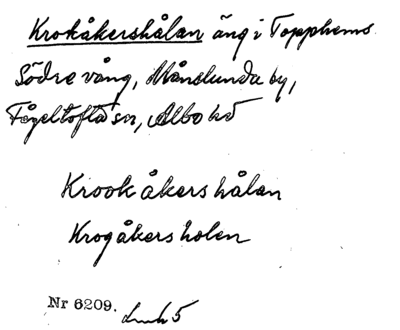 Krokåkershålan äng i Topphems
Södre vång, Månslunda by,
Fågeltofta sn, Albo hd
Krook åkers hålan
Krogåkers holen
Nr 6209.